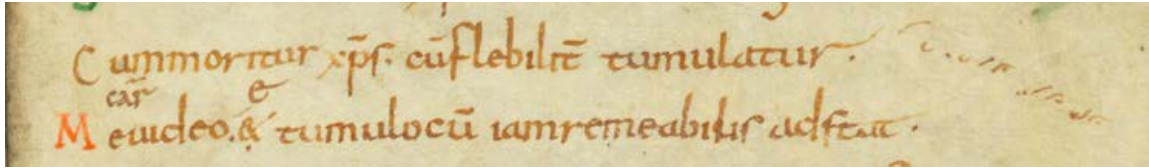 Cummoritur xp̄s. cūflebilit̄ tumulatur.
car̄ e
Meuideo. & tumulocū iamremeabilis adstat.